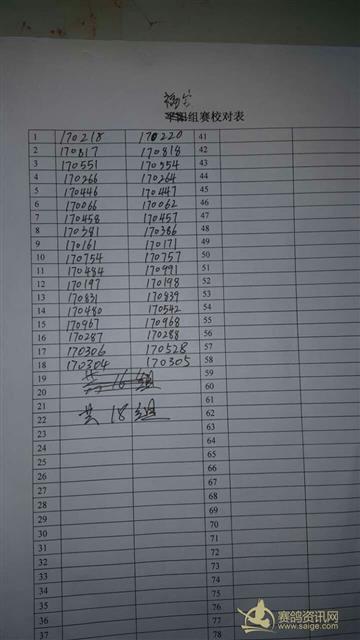 组赛校对表
1 170218 170220 41
2 170817 170818 42
3 170551 170554 43
4 170266 170264 44
5 170446 170447 45
6 170066 170062 46
7 170458 170457 47
8 170381 170386 48
9 170161 170171 49
10 170754 170757 50
11 170484 170991 51
12 170197 170198 52
13 170831 170839 53
14 170480 170542 54
15 170967 170968 55
16 170287 170288 56
17 170306 170528 57
18 170304 170305 58
19 共16组 59
20 60
21 61
22 共18组 62
23 63
24 64
25 65
26 66
27 67
28 68
29 69
30 70
31 71
32 72
33 73
34 74
35 75
36 76
37 77
78
赛鸽资讯网
www.saige.com